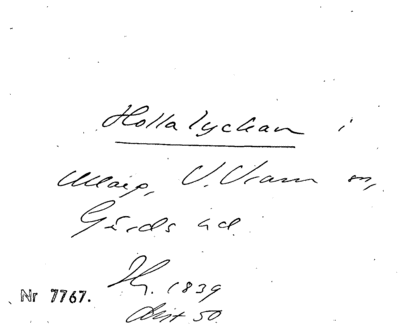 Hollalyckan i
Maap, V. Vram sn,
Gärds hd.
Hr. 1839
Nr 7767.
Akt 50